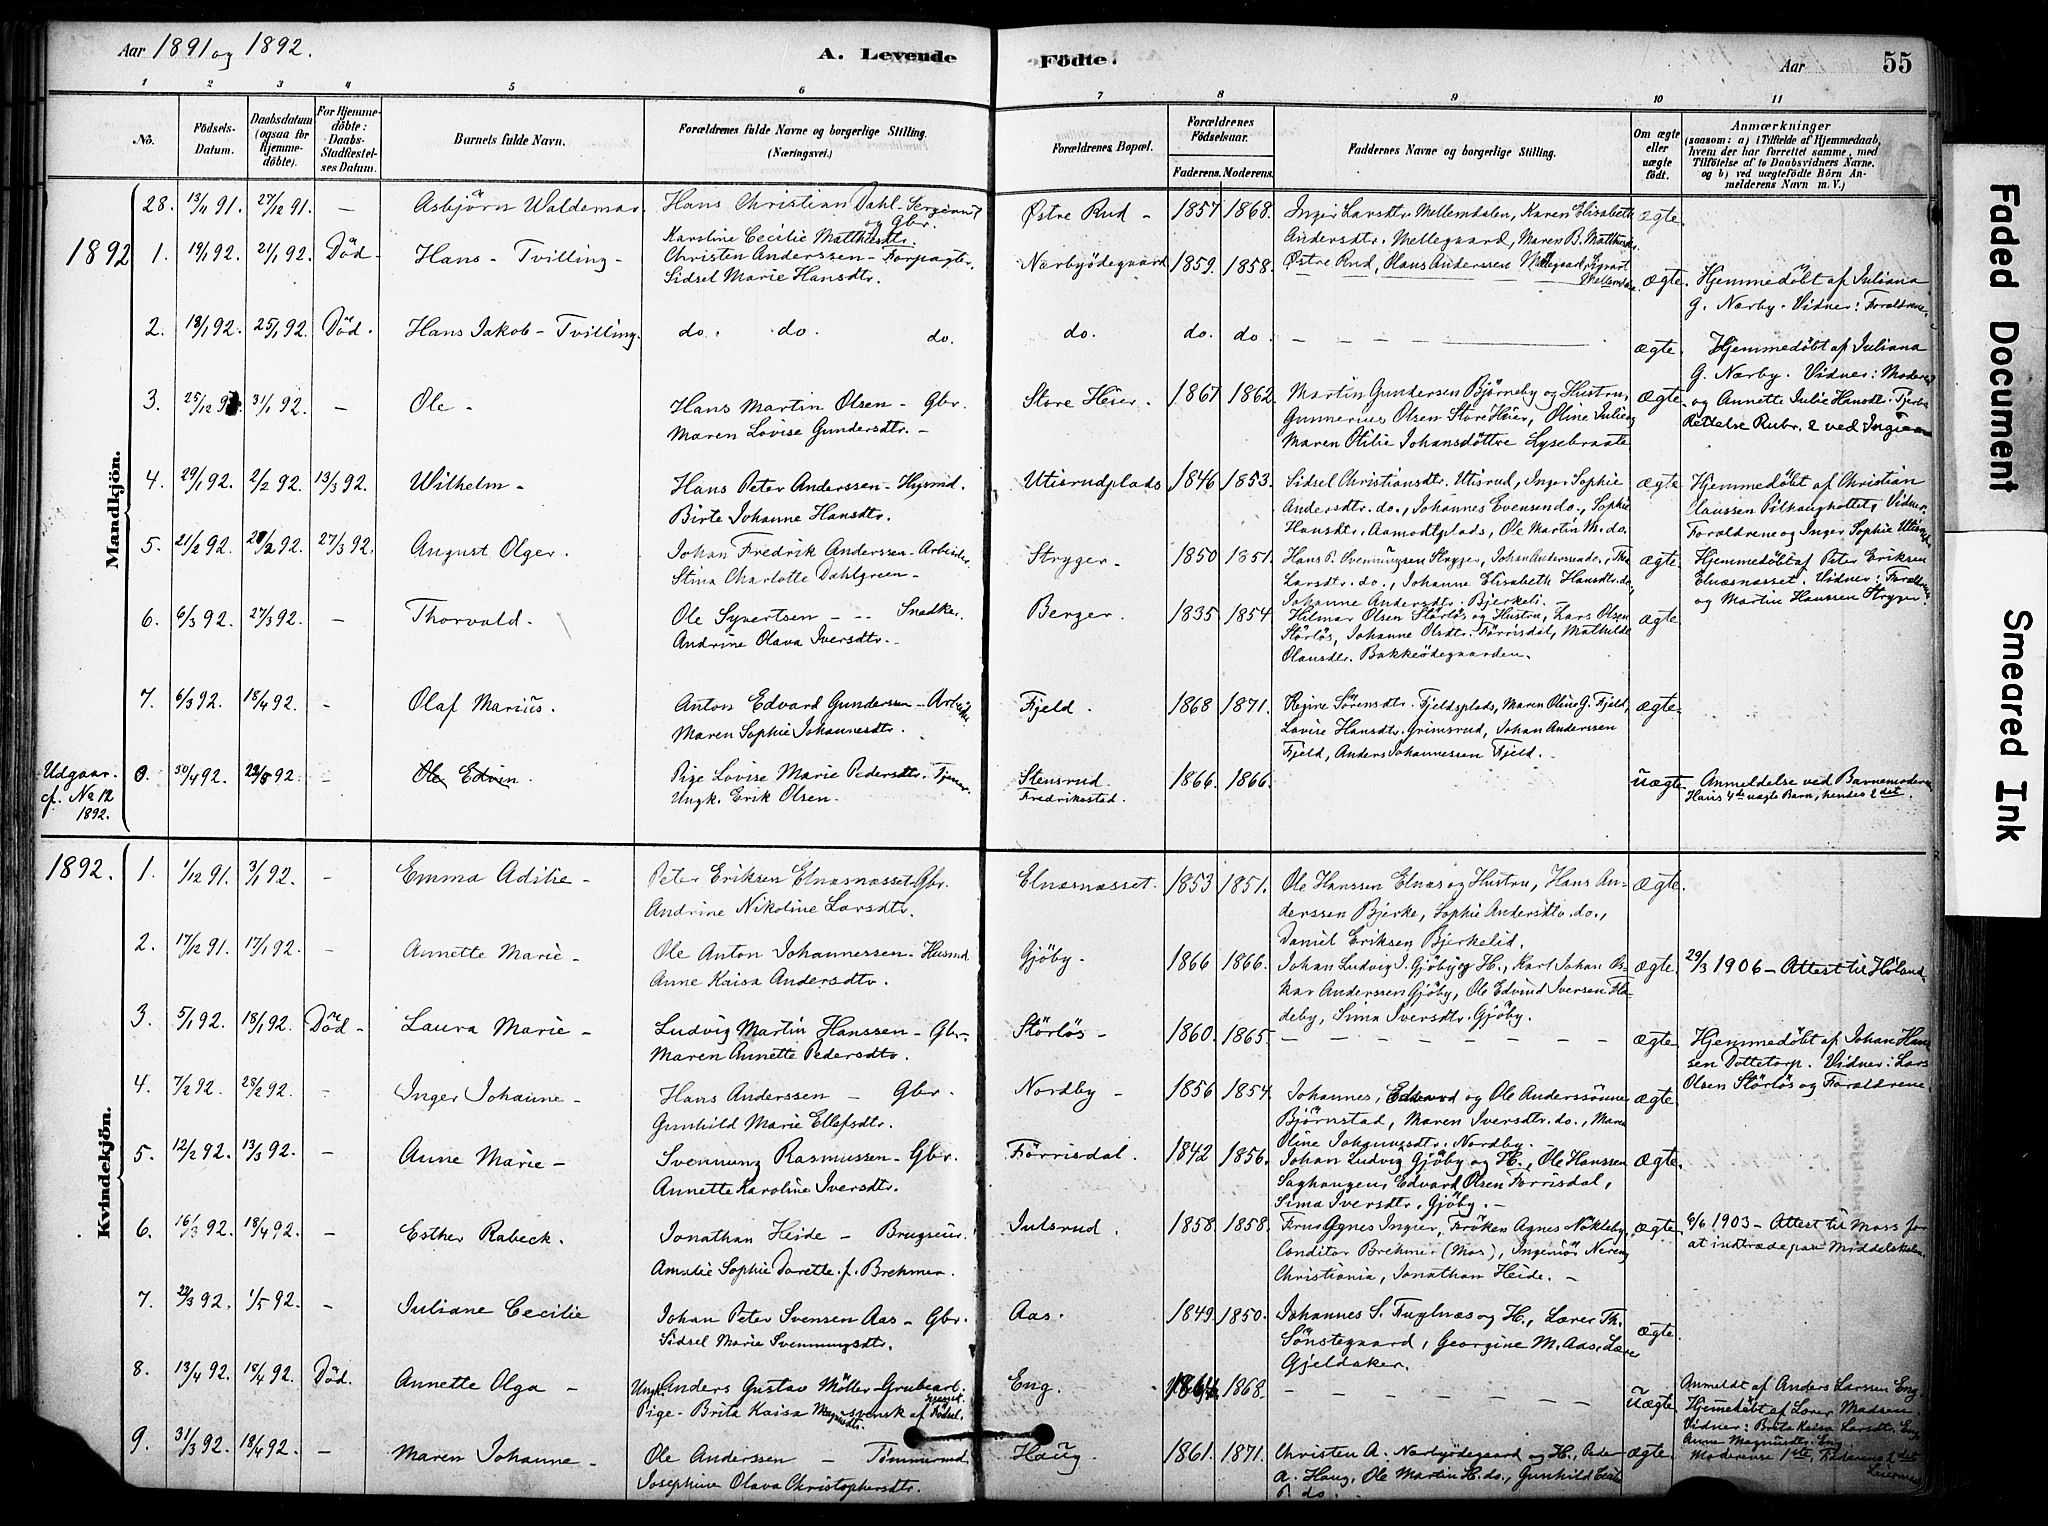 Aar 1891 og 1892.
A. Levende Födte.
Aar
55
1 2 3 4 5 6 7 8 9 10 11
No.
Födsels-Datum.
Daabsdatum (ogsaa for Hjemme-döbte).
For Hjemme-döbte: Daabs-Stadfæstel-ses Datum.
Barnets fulde Navn.
Forældrenes fulde Navne og borgerlige Stilling. (Næringsvei.)
Forældrenes Bopæl.
Forældrenes Födselsaar.
Faderens. Moderens.
Faddernes Navne og borgerlige Stilling.
Om ægte eller uægte födt.
Anmærkninger
(saasom: a) i Tilfælde af Hjemmedaab, hvem der har forrettet samme, med Tilföielse af to Daabsvidners Navne, og b) ved uægtefödte Börn An-melderens Navn m. V.)
Mandkjön.
28. 13/11 91. 27/12 91. – Asbjörn Waldemar Hans Christian Dahl - og Gbr. Östre Rud - 1857 1868. Inger Larsdtr. Mellemdalen, Karen Elisabeth ægte
Karoline Cecilie Matthisdtr. Andersdtr. Mellegaard, Maren B.
1892 1. 19/1 92. 21/1 92. Död - Hans - Tvilling - Christen Anderssen - Forpagter. Nærbyödegaard 1859. 1858. Östre Rud, Olaus Anderssen ægte. Hjemmedöbt af Juliana
Sidsel Marie Hansdtr. G. Nærby. Vidner: Forældrene.
2. 18/1 92. 25/1 92. Död. Hans Jakob - Tvilling. do. do. do. do. do. do. – – – ægte. Hjemmedöbt af Juliana
G. Nærby. Vidner: Moderen
3. 25/12 31/1 92. – Ole - Hans Martin Olsen - Gbr. Store Heier. 1867 1862. Martin Gundersen Björneby og Hustru, ægte. og Annette Julie Hansdtr.
Maren Lovise Gundersdtr. - Gunnerius Olsen Store Heier, Oline Julie og Rettelse Rubr. 2 ved Ingier
Maren Otilie Johansdöttre Lysebraate
4. 29/1 92. 2/2 92. 13/3 92. Wilhelm - Hans Peter Anderssen - Husmd. Utisrudplads 1846 1853. Sidsel Christiansdtr. Utisrud, Inger Sophie ægte Hjemmedöbt af Christian
Birte Johanne Hansdtr. Andersdtr. do., Johannes Evensen do., Sophie Claussen Pilhaugholtet, Vidner
Hansdtr. Aamodtplads, Ole Martin M. do. Forældrene og Inger Sophie Utisrud
5. 21/2 92. 28/2 92. 27/3 92. August Olger. Johan Fredrik Anderssen - Arbeider. Stryger. 1850 1851. Hans P. Svenningsen Stryger, Johan Andersen do., ægte Hjemmedöbt af Peter Eriksen
Stina Charlotte Dahlgreen - Larsdtr. do., Johanne Elisabeth Hansdtr. do., Elnæsnæsset. Vidner: Forældrene
Johanne Andersdtr. Bjerkeli. - og Martin Hanssen Stryger
6. 6/3 92. 27/3 92. – Thorvald - Ole Syvertsen - - Snedker. Berger 1835 1854 Hilmar Olsen Störlös og Hustru, Lars Olsen ægte
Andrine Olava Iversdtr. Störlös, Johanne Olsdtr. Förrisdal, Mathilde
Olausdtr. Bakkeödegaarden.
7. 6/3 92. 18/4 92. - Olaf Marius. Anton Edvard Gundersen - Arbeider Fjeld. 1868 1871. Regine Sörensdtr. Fjeldsplads, Maren Oline G. Fjeld, ægte.
Maren Sophie Johannesdtr. Lovise Hansdtr. Grimsrud, Johan Anderssen
Fjeld, Anders Johannessen Fjeld.
Udgaar. cf. No 12 1892. 0. 30/4 92. 22/5 92. - Ole Edvin. Pige Lovise Marie Pedersdtr. Tjener. Stensrud. 1866. 1866. uægte Anmeldelse ved Barnemoderen
Ungk. Erik Olsen. Fredrikstad. Hans 4de uægte Barn, hendes 2det.
Kvindekjön.
1892. 1. 1/12 91. 3/1 92. - Emma Adilie - Peter Eriksen Elnæsnæsset. Gbr. Elnæsnæsset. 1853 1851. Ole Hanssen Elnæs og Hustru, Hans An- ægte.
Andrine Nikoline Larsdtr. derssen Bjerke, Sophie Andersdtr. do.,
Daniel Eriksen Bjerkelid.
2. 17/12 91. 17/1 92. - Annette Marie - Ole Anton Johannessen - Husmd. Gjöby. 1866 1866. Johan Ludvig J. Gjöby og H., Karl Johan Os- ægte. 29/3 1906 - Attest til Höland
Anne Kaisa Andersdtr. kar Anderssen Gjöby, Ole Edvind Iversen Fla-
deby, Sima Iversdtr. Gjöby.
3. 5/1 92. 18/1 92. Död - Laura Marie - Ludvig Martin Hanssen - Gbr. Störlös - 1860. 1865. – – – ægte. Hjemmedöbt af Johan Han-
Maren Annette Pedersdtr. sen Dottetorp. Vidner: Lars
Olsen Störlös og Forældrene
4. 7/2 92. 28/2 92. - Inger Johanne - Hans Anderssen - Gbr. Nordby - 1856 1854. Johannes, Edvard og Ole Anderssönner ægte.
Gunhild Marie Ellefsdtr. Björnstad, Maren Iversdtr. do., Maren
Oline Johannesdtr. Nordby. -
5. 12/2 92. 13/3 92. - Anne Marie - Svennung Rasmussen - Gbr. Förrisdal. 1842 1856. Johan Ludvig Gjöby og H., Ole Hanssen ægte.
Annette Karoline Iversdtr. Saghaugen, Edvard Olsen Forrisdal,
Sima Iversdtr. Gjöby. -
6. 16/3 92. 18/4 92. - Esther Rabeck. Jonathan Heide - Brugseier. Julsrud. 1858 1858. Frue Agnes Ingier, Fröken Agnes Nökleby, ægte 6/6 1903 - Attest til Moss for
Amalie Sophie Dorette f. Brehmer. Conditor Brehmer (Mos), Ingeniör at indtræde paa Middelskolen.
Christiania, Jonathan Heide. -
7. 22/3 92. 1/5 92. - Juliane Cecilie Johan Peter Svensen Aas - Gbr. Aas. 1849 1850. Johannes S. Fuglnæs og H., Lærer Th. ægte
Sidsel Marie Svenningsdtr. Sönstegaard, Georgine M. Aas, Lærer
Gjeldaker.
8. 13/4 92. 18/4 92. Död. Annette Olga - Ungk. Anders Gustav Möller - Grubearb. Eng. 1864 1868. – – – uægte. Anmeldt af Anders Larssen Eng.
Pige - Brita Kaisa Magnisdtr. svensk af Födsel. Hjemmedöbt af Lærer Madsen.
Vidner: Brita Kaisa Larsdtr. Eng
Anne Magnusdtr. Eng
9. 31/3 92. 18/4 92. - Maren Johanne - Ole Anderssen - Tömmermd. Haug. 1861. 1871. Christen A. Nærbyödegaard og H., Peder ægte Moderens 1ste, Faderens 2det
Josephine Olava Christophersdtr. A. Haug, Ole Martin H. do., Gunhild Leiermaal
P. do.
Faded Document
Smeared Ink